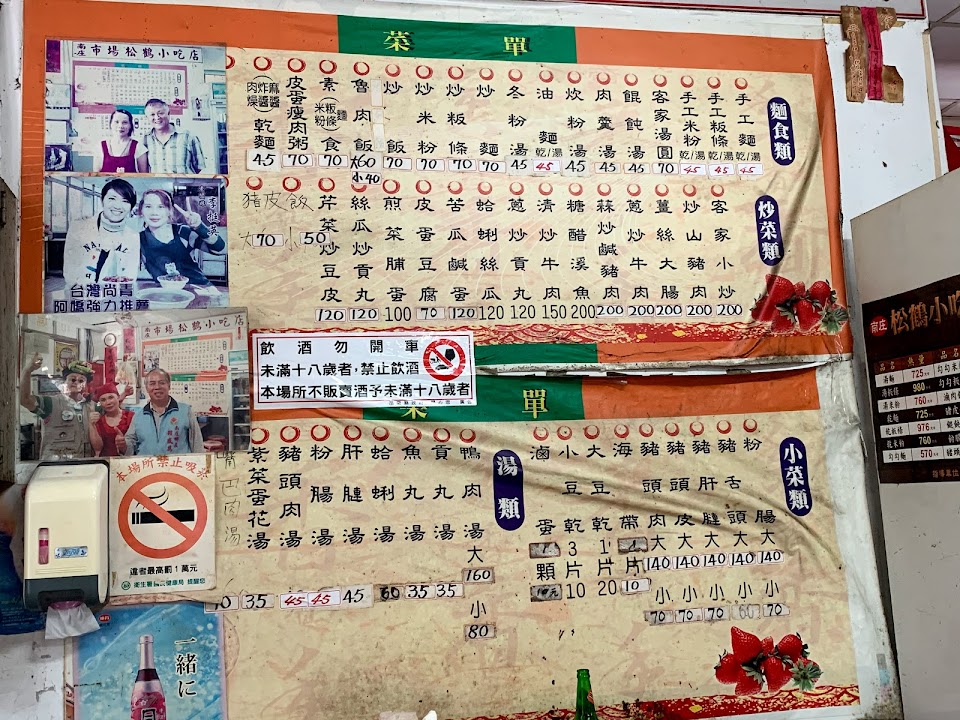 菜單
麵食類
手工麵 乾/湯 45
手工粄條 乾/湯 45
手工米粉 乾/湯 45
客家湯圓 70
餛飩湯 45
肉羹湯 45
炊粉湯 45
油麵 乾/湯 45
冬粉湯 45
炒麵 70
炒粄條 70
炒米粉 70
炒飯 70
魯肉飯 大60 小40
素食 米粉 粄條 麵 70
皮蛋瘦肉粥 70
麻醬 炸醬 肉燥 乾麵 45
炒菜類
客家小炒 200
炒山豬肉 200
薑絲大腸 200
蔥炒牛肉 200
蒜炒鹹豬肉 200
糖醋溪魚 200
清炒牛肉 150
蔥炒貢丸 120
蛤蜊絲瓜 120
苦瓜鹹蛋 120
皮蛋豆腐 70
煎菜脯蛋 100
絲瓜炒貢丸 120
芹菜炒豆皮 120
豬皮飯
大70 小50
南庄 市場松鶴小吃店
李桂英
台灣尚青
阿嬌強力推薦
南庄 市場松鶴小吃店
飲酒勿開車
未滿十八歲者，禁止飲酒
本場所不販賣酒予未滿十八歲者
菜單
小菜類
粉腸 大140 小70
豬舌頭 大140 小60
豬肝腱 大140 小70
豬頭皮 大140 小70
豬頭肉 大140 小70
海帶 1片 10
大豆乾 1片 20
小豆乾 3片 10
滷蛋 1顆 10元
湯類
鴨肉湯 大160 小80
貢丸湯 35
魚丸湯 35
蛤蜊湯 60
肝腱湯 45
粉腸湯 45
豬頭肉湯 45
紫菜蛋花湯 35
嘴巴肉湯
本場所禁止吸菸
違者最高罰1萬元
一緒に
南庄 松鶴小吃
品名 熱量 品名
725
980
760
725
976
760
570